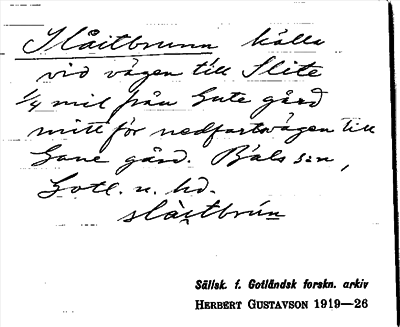 Slåitbrunn källa
vid vägen till Slite
1/4 mil från Gute gård
mitt för nedfartsvägen till
Gane gård. Bäls sn,
Gotl. n. hd.
slåi̯tbrún
Sällsk. f. Gotländsk forskn. arkiv
HERBERT GUSTAVSON 1919—26